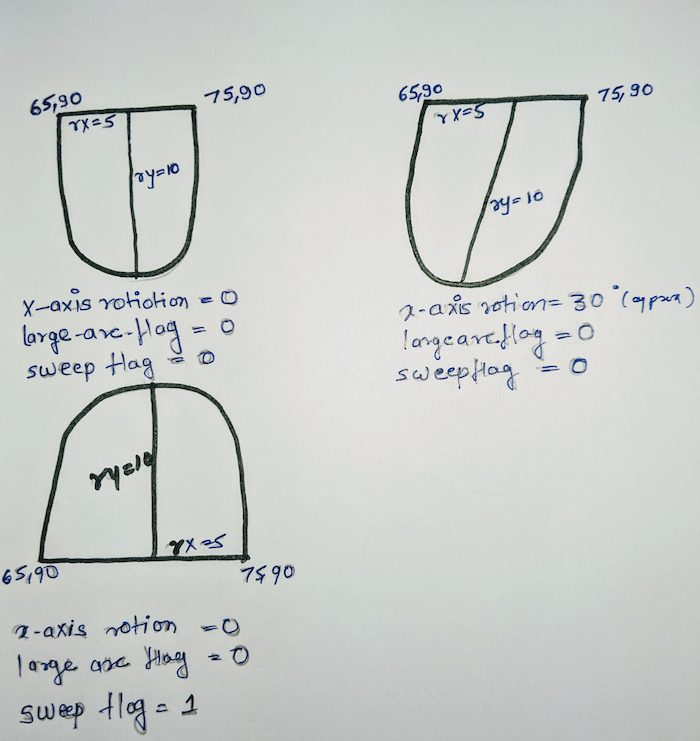 65,90
75,90
rx=5
ry=10
x-axis rotiotion = 0
large-arc-flag = 0
sweep flag = 0
65,90
75,90
rx=5
ry=10
x-axis rotion = 30° (apprx)
large arc flag = 0
sweep flag = 0
ry=10
rx=5
65,90
75,90
x-axis rotion = 0
large arc flag = 0
sweep flag = 1